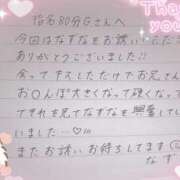 Thank you
指名80分Gさんへ
今回はなずなをお誘いいただき
ありがとうございました!!
会ってキスしただけでお兄さん
お○んぽ大きくなって硬くなって
てそれ見てなずなを興奮してし
いました…♡
またお誘いお待ちしてます
なず